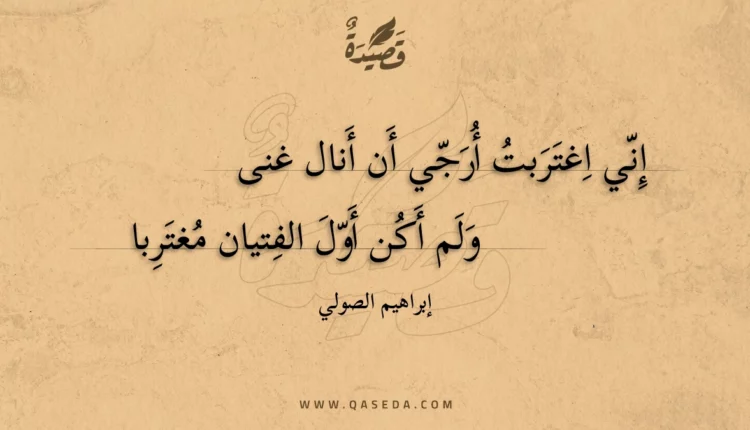 قَصِيدَةٌ
إِنّي اِغتَرَبتُ أُرَجّي أَن أَنال غنى
وَلَم أَكُن أَوّلَ الفِتيان مُغتَرِبا
إبراهيم الصولي
WWW.QASEDA.COM